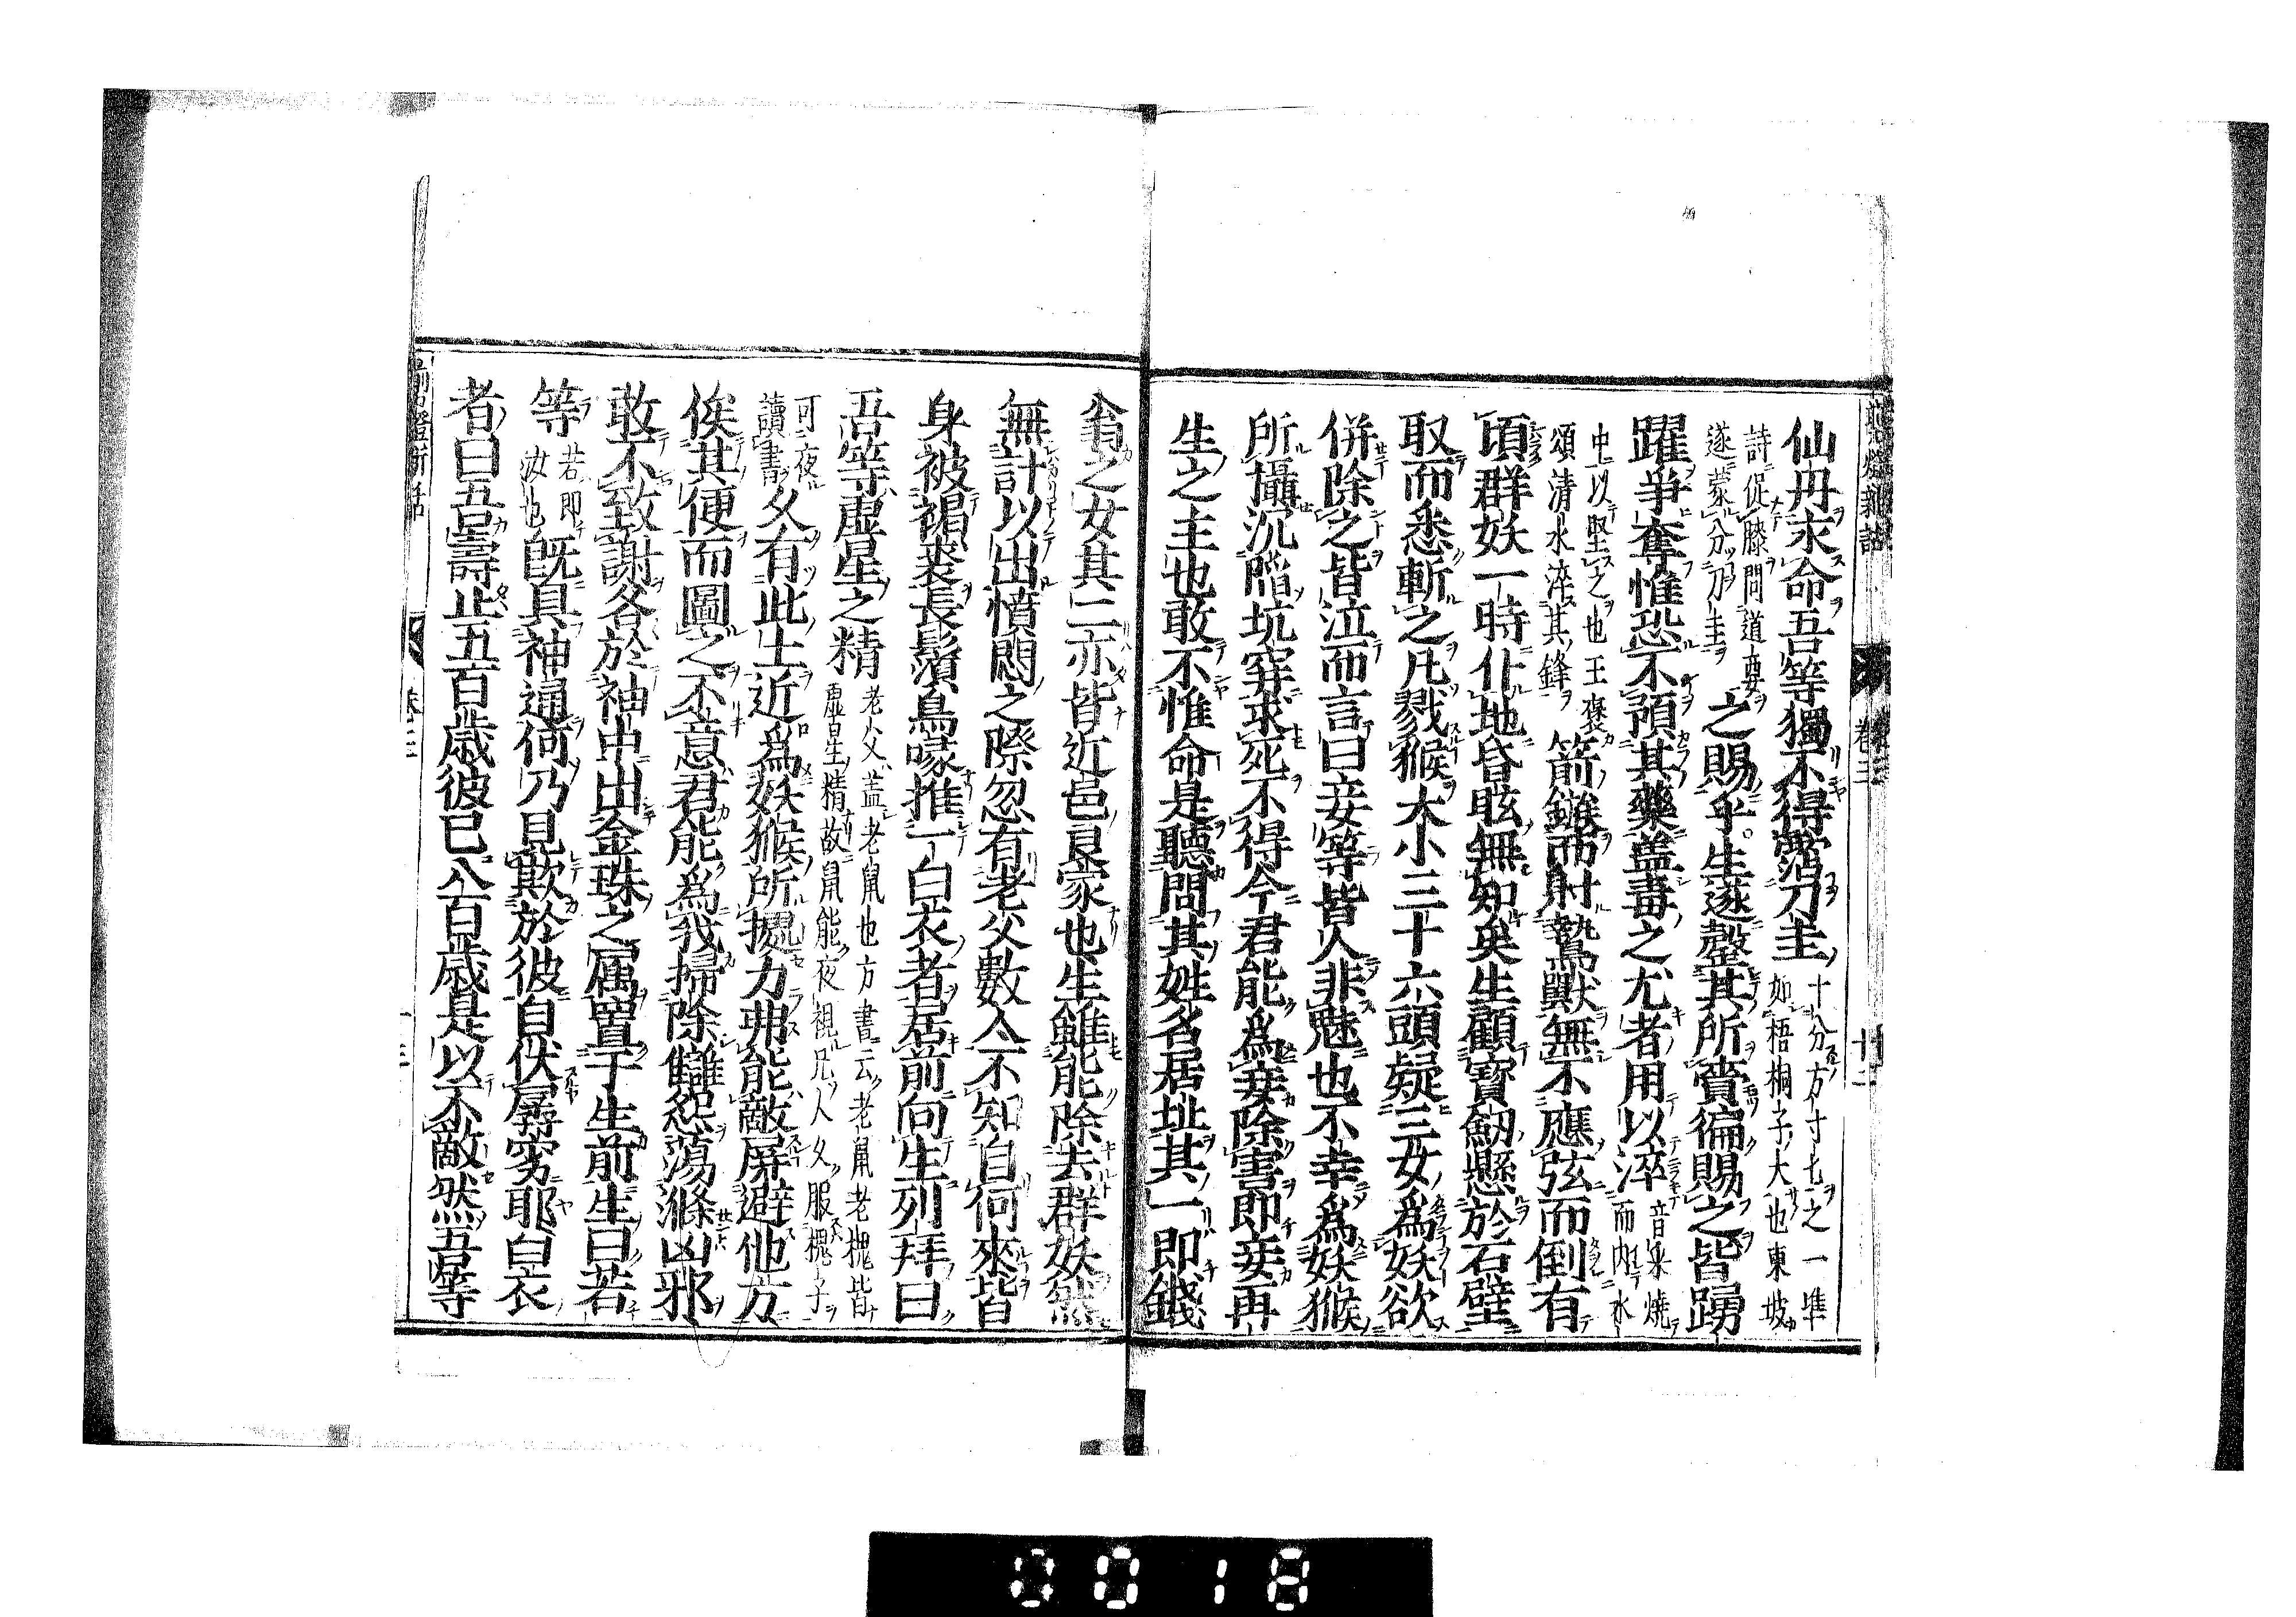 仙丹求命吾等獨不得霑刀圭十分方寸匕之一準
如梧桐子大也東坡
詩促膝問道要
遂蒙分刀圭之賜乎生遂罄其所賫徧賜之皆踴
躍爭奪惟恐不預其藥盖毒之尤者用以淬音 燒
而內水
中以堅之也王褒
頌清水淬其鋒箭鏃而射鷙獸無不應弦而倒有
頃群妖一時仆地昏眩無知矣生顧寶劒懸於石壁
取而悉斬之凡戮猴大小三十六頭疑三女爲妖欲
併除之皆泣而言曰妾等皆人非魅也不幸爲妖猴
所攝沉陷坑穽求死不得今君能爲妾除害即妾再
生之主也敢不惟命是聽問其姓名居址其一即錢
翁之女其二亦皆近邑良家也生雖能除去群妖然
無計以出憤悶之際忽有老父數人不知自何來皆
身被褐裘長鬚烏喙推一白衣者居前向生列拜曰
吾等虛星之精老父盖老鼠也方書云老鼠老槐皆
虛星精故鼠能夜視凡人久服槐子
可夜
讀書久有此土近爲妖猴所據力弗能敵屏避他方
俟其便而圖之不意君能爲我掃除讎怨蕩滌凶邪
敢不致謝各於袖中出金珠之属置于生前生曰若
等若即
汝也既具神通何乃見欺於彼自伏孱劣耶白衣
者曰吾壽止五百歲彼已八百歲是以不敵然吾等
卷三